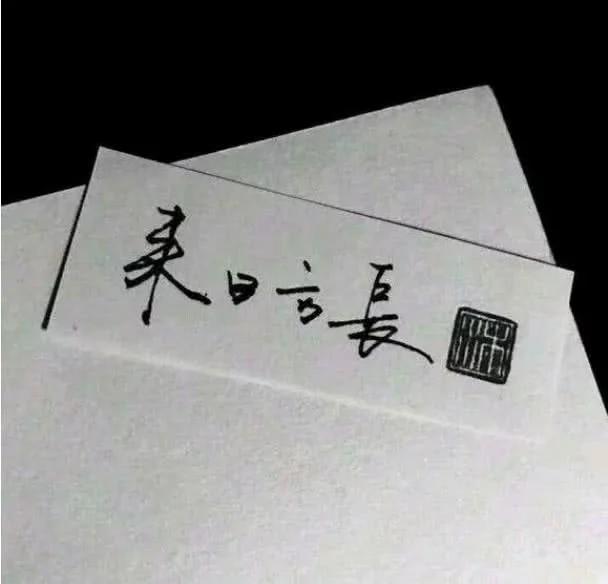 来日方長